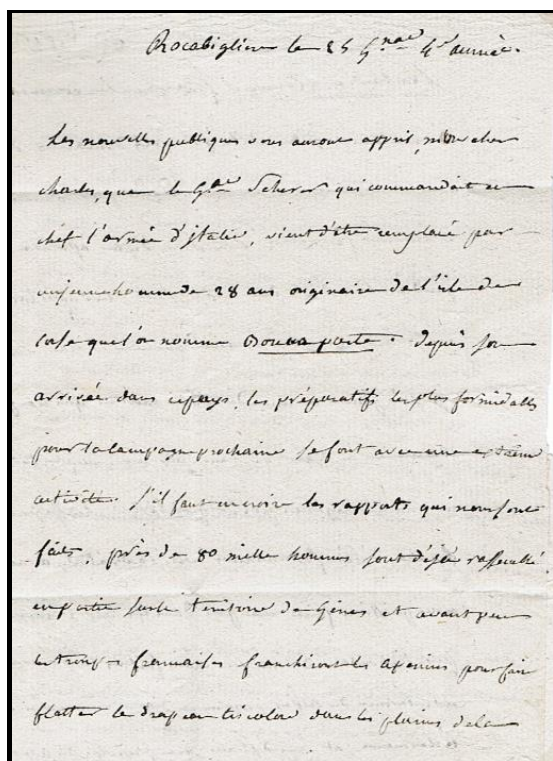 Rocabiglier le 25 G.nal 4e année.
Les nouvelles publiques vous auront appris, mon cher
charles, que le Gal Scherer qui commandait en
chef l'armée d'italie, vient d'être remplacé par
un jeune homme de 28 ans originaire de l'isle de
Corse que l'on nomme Bonnaparte. depuis son
arrivée dans ce pays, les préparatifs les plus formidables
pour la campagne prochaine se font avec une extrême
activité. s'il faut en croire les rapports qui nous sont
faits, près de 80 mille hommes sont déjà rassemblés
en partie sur le territoire de Gênes et avant peu
les troupes françaises franchiront les Apenins pour faire
flotter le drapeau tricolore dans les plaines de la